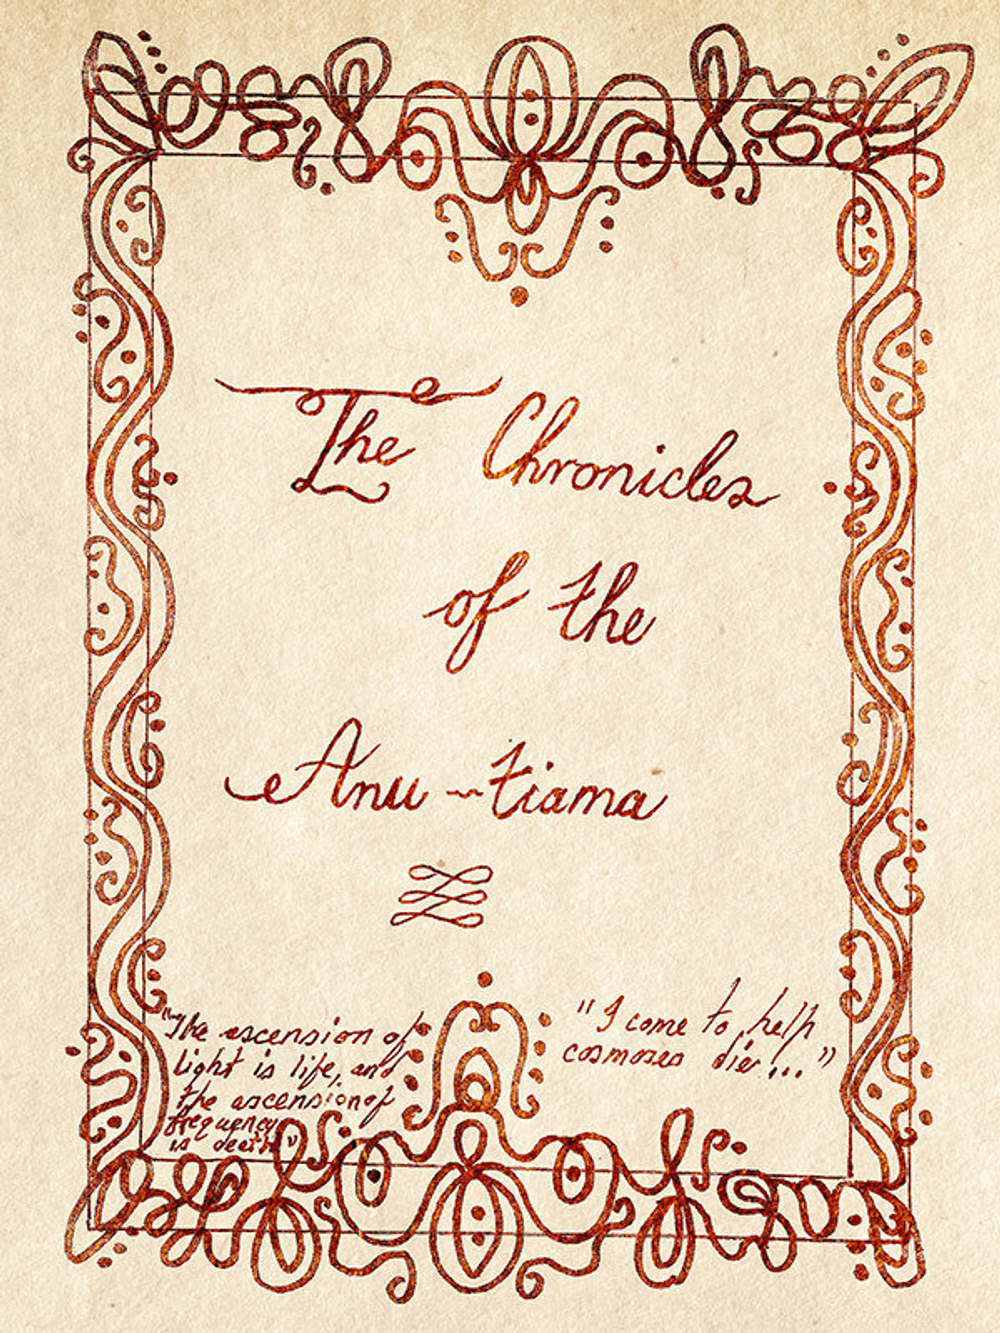 The Chronicles
of the
Anu-tiama
"The ascension of
light is life, and
the ascension of
frequency
is death"
"I come to help
cosmoses die..."